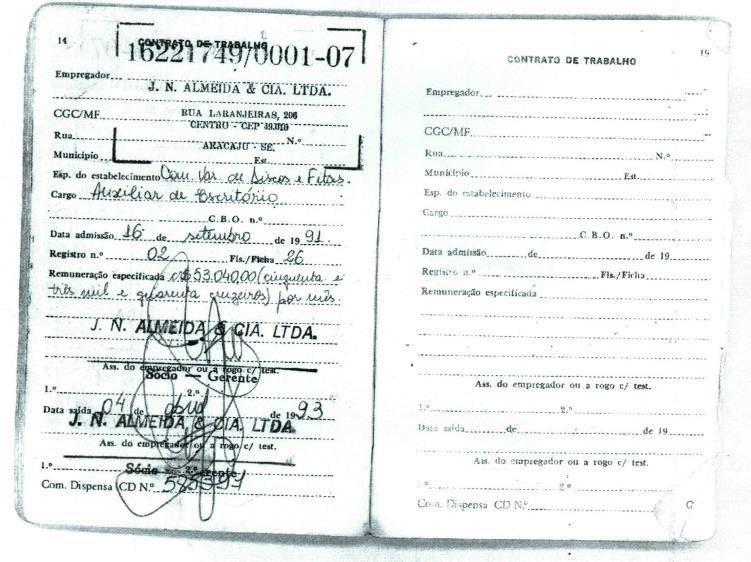 14
CONTRATO DE TRABALHO
16221749/0001-07
Empregador
J. N. ALMEIDA & CIA. LTDA.
CGC/MF RUA LARANJEIRAS, 206
CENTRO - CEP 49.010
Rua N.º
ARACAJU - SE.
Município Est.
Esp. do estabelecimento Com Var de Discos e Fitas.
Cargo Auxiliar de Escritório
C.B.O. n.º
Data admissão 16 de setembro de 1991.
Registro n.º 02 Fls./Ficha 26
Remuneração especificada cr$53.040,00 (cinquenta e
três mil e quarenta cruzeiros) por mês.
J. N. ALMEIDA & CIA. LTDA.
Ass. do empregador ou a rogo c/ test.
Sócio — Gerente
1.º 2.º
Data saída 04 de abril de 1993
J. N. ALMEIDA & CIA. LTDA.
Ass. do empregador ou a rogo c/ test.
1.º 2.º
Sócio — Gerente
Com. Dispensa CD N.º
CONTRATO DE TRABALHO
Empregador
CGC/MF
Rua N.º
Município Est.
Esp. do estabelecimento
Cargo
C.B.O. n.º
Data admissão de de 19
Registro n.º Fls./Ficha
Remuneração especificada
Ass. do empregador ou a rogo c/ test.
1.º 2.º
Data saída de de 19
Ass. do empregador ou a rogo c/ test.
1.º 2.º
Com. Dispensa CD N.º